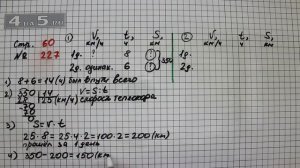 4 на 5.ru
Стр. 60
№ 227
V, t, S,
км/ч ч км
1д. ? 8 ?
2д. одинак. 6 ?
350
2 V, t, S,
км/ч ч км
1д.
2д.
1) 8+6=14(ч) был в пути всего
2) 350 14 V=S:t
28 25(км/ч) скорость теплохода
70
70
0
3) S=V·t
25·8=25·4·2=100·2=200(км)
прошёл за 1 день
4) 350-200=150(км